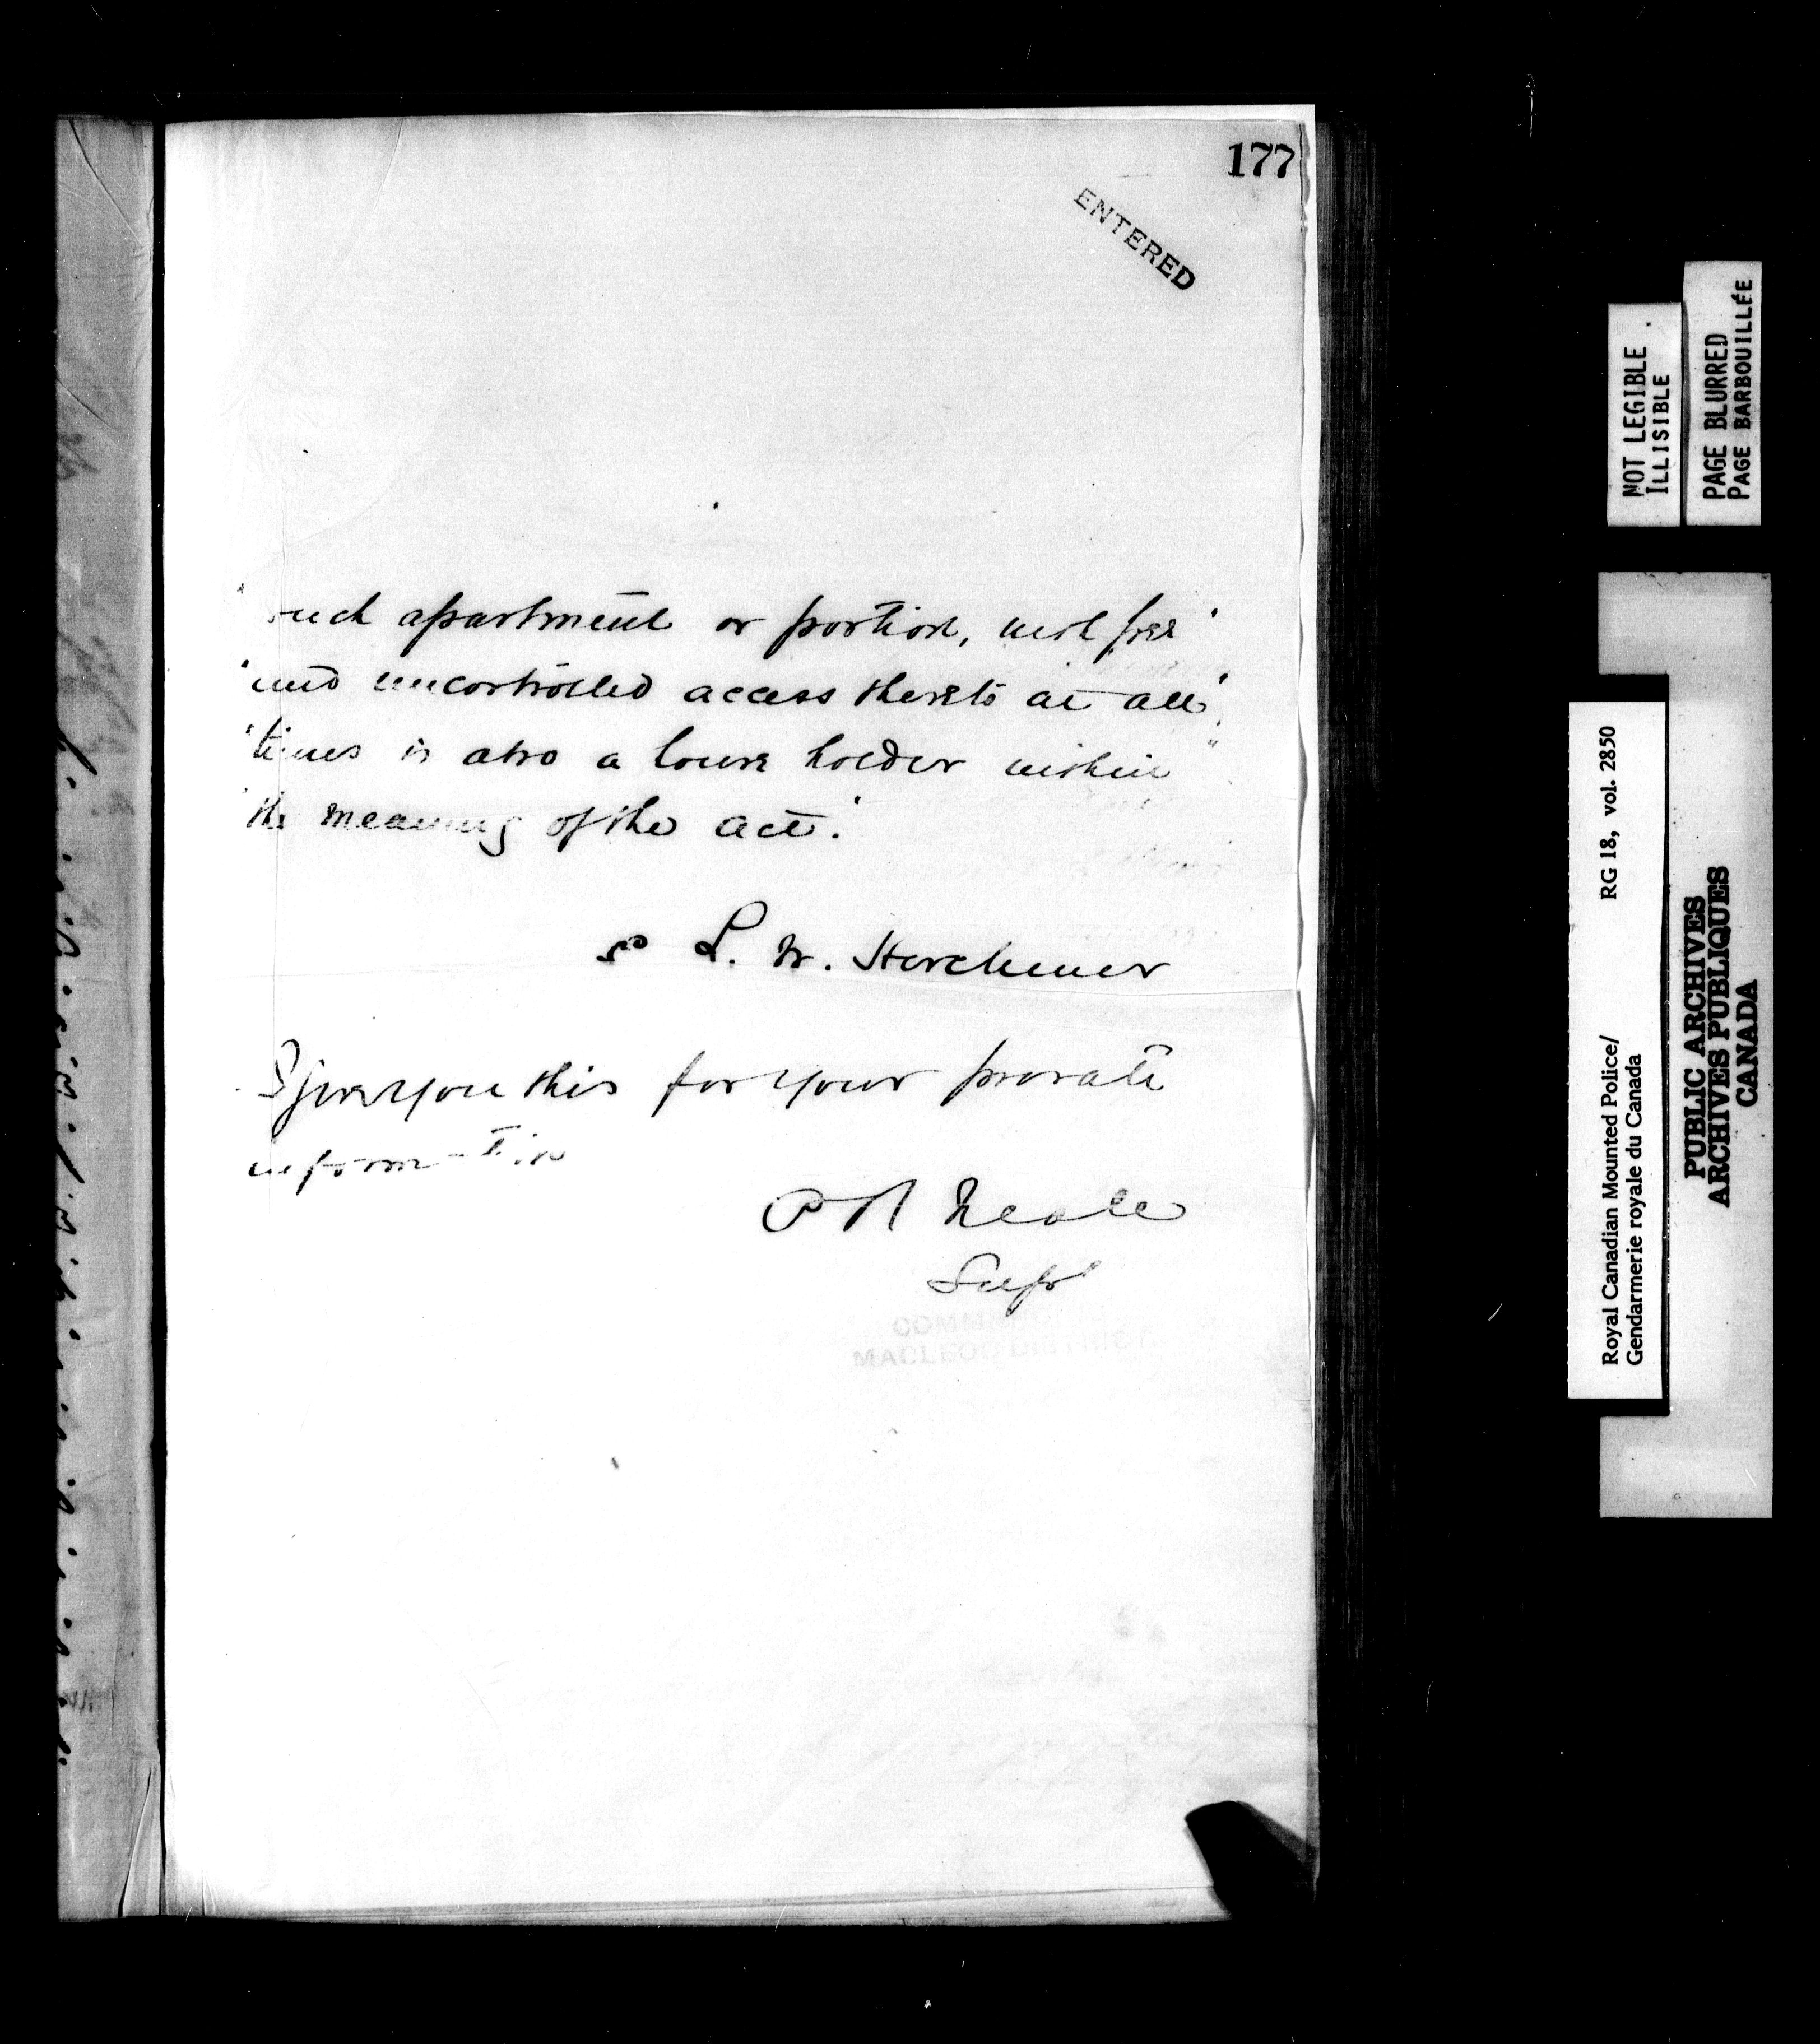 177
ENTERED
"such apartment or portion, with free"
"and uncontrolled access thereto at all"
"times is also a house holder within"
"the meaning of the act."
L. W. Herchmer
I give you this for your private
information
P R Neale
Supt
COMMANDING
MACLEOD DISTRICT.
NOT LEGIBLE
ILLISIBLE
PAGE BLURRED
PAGE BARBOUILLÉE
Royal Canadian Mounted Police/ RG 18, vol. 2850
Gendarmerie royale du Canada
PUBLIC ARCHIVES
ARCHIVES PUBLIQUES
CANADA